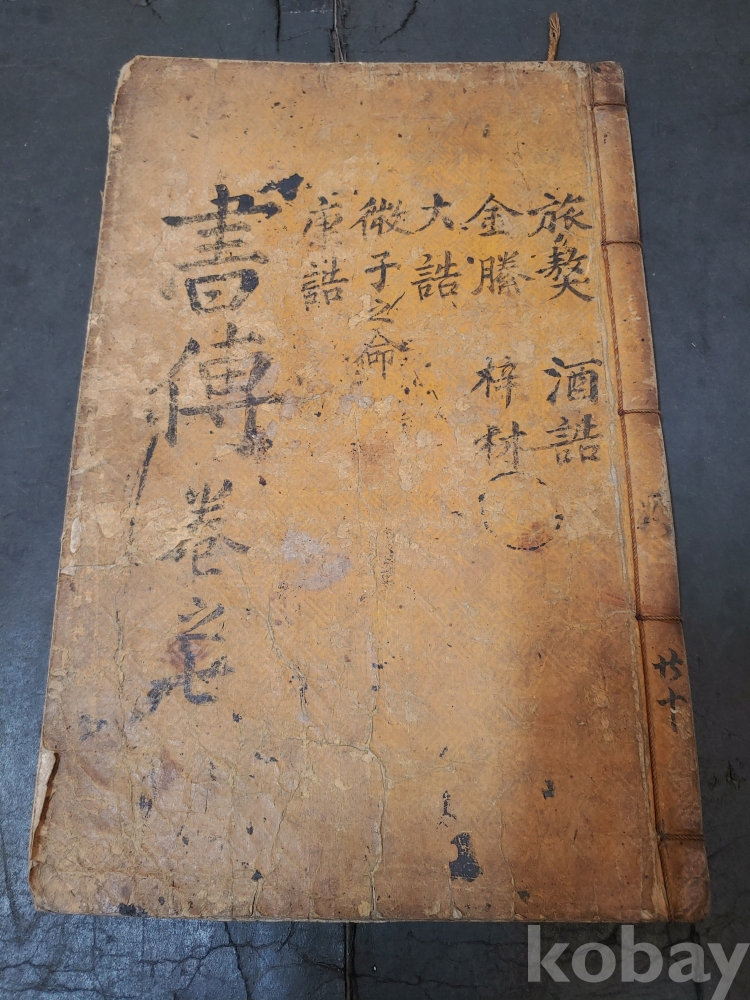 旅獒 酒誥
金縢 梓材
大誥
微子之命
康誥
書傳卷之七
共十
kobay